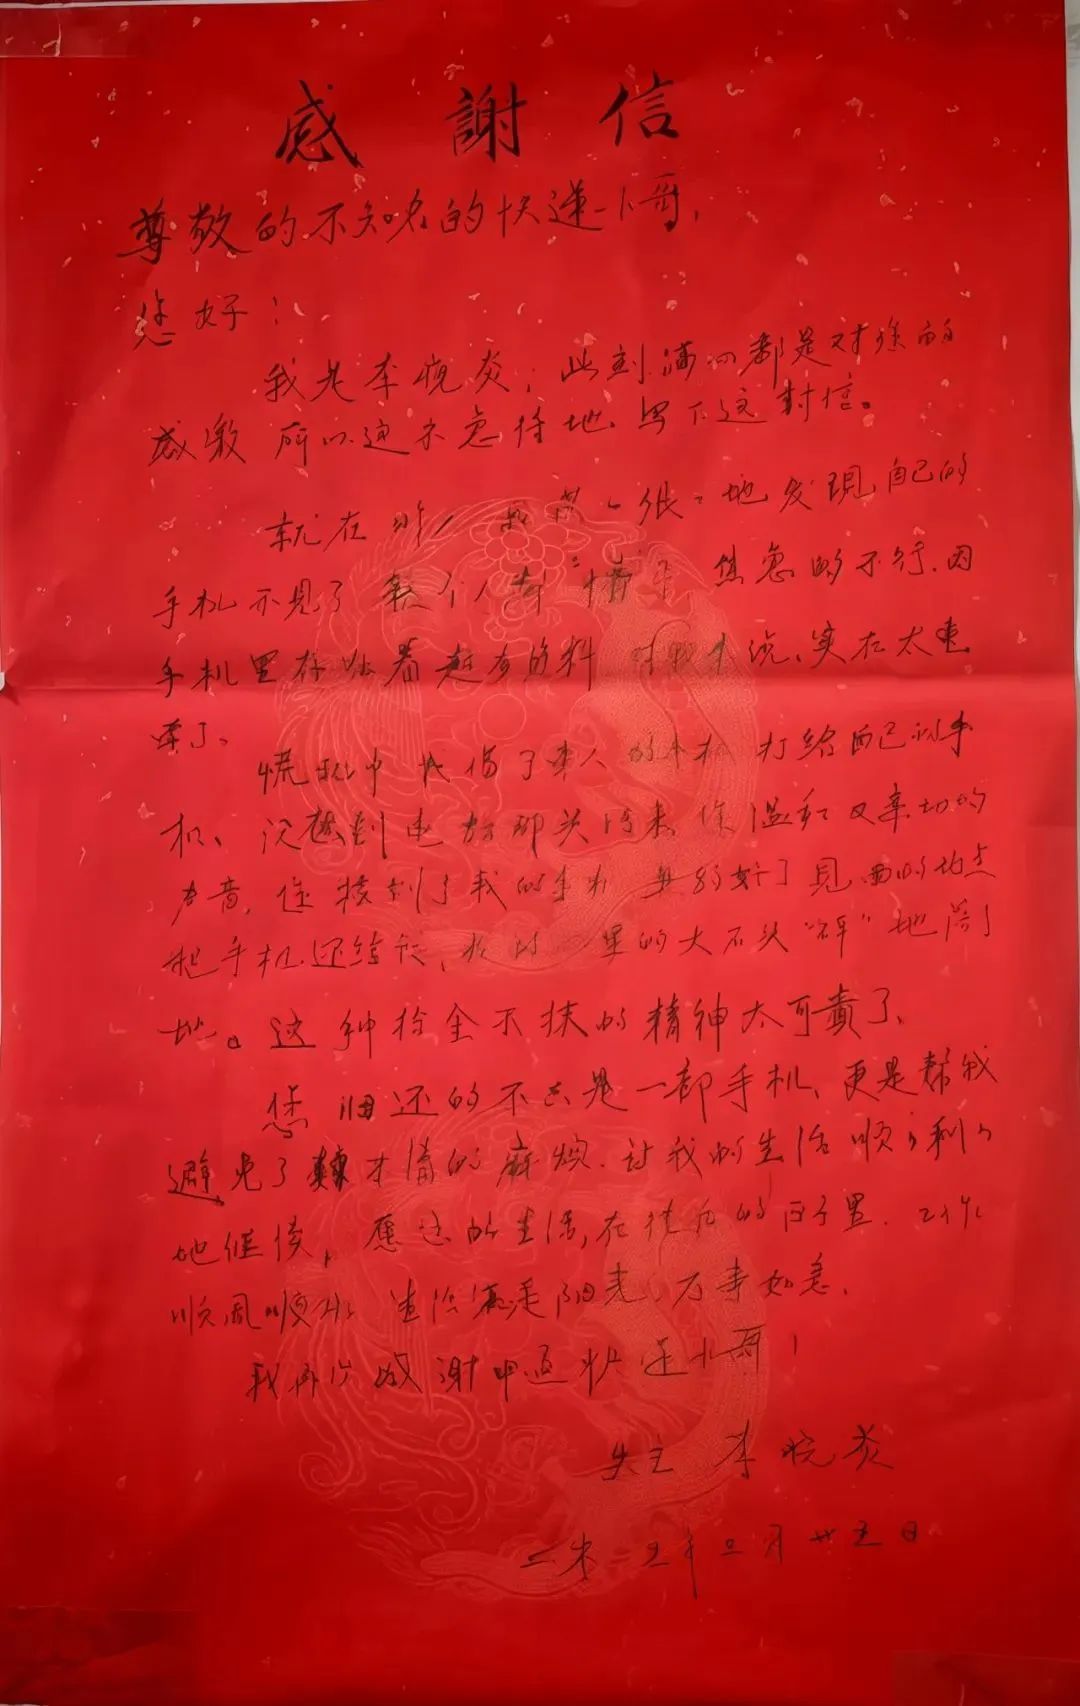 感謝信
尊敬的不知名的快递小哥,
您好!
我是李悦炎,此刻满心都是对您的
感激 所以迫不急待地写下这封信。
就在昨 慌慌张张地发现自己的
手机不见了 整个人 焦急的不行,因
手机里存 着 资料 对我来说,实在太重
要了。
慌乱中 我借了 人的手机 打给自己的手
机、没想到电话那头传来您温和又亲切的
声音,您捡到了我的手机 约好了见面的地点
把手机还给我, 里的大石头“砰”地落了
地。这种拾金不抹的精神太可贵了、
您归还的不只是一部手机、更是帮我
避免了 的麻烦.让我的生活顺顺利利
地继续, 的生活,在往后的日子里. 工作
顺风顺水 生活满是阳光、万事如意.
我再次感谢中通快递小哥!
失主 李 炎
二 五年 月廿五日